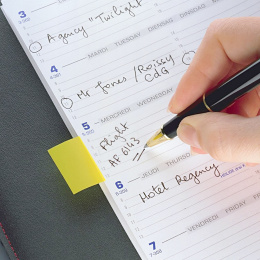 3
Agency "Twilight
4
MARDI TUESDAY DIENSTAG
Mr Jones / Roissy
CdG
5
MERCREDI WEDNESDAY
Flight
AF 6143
JEUDI THURSDAY
6
Hotel Regency
VENDREDI FRIDAY
7